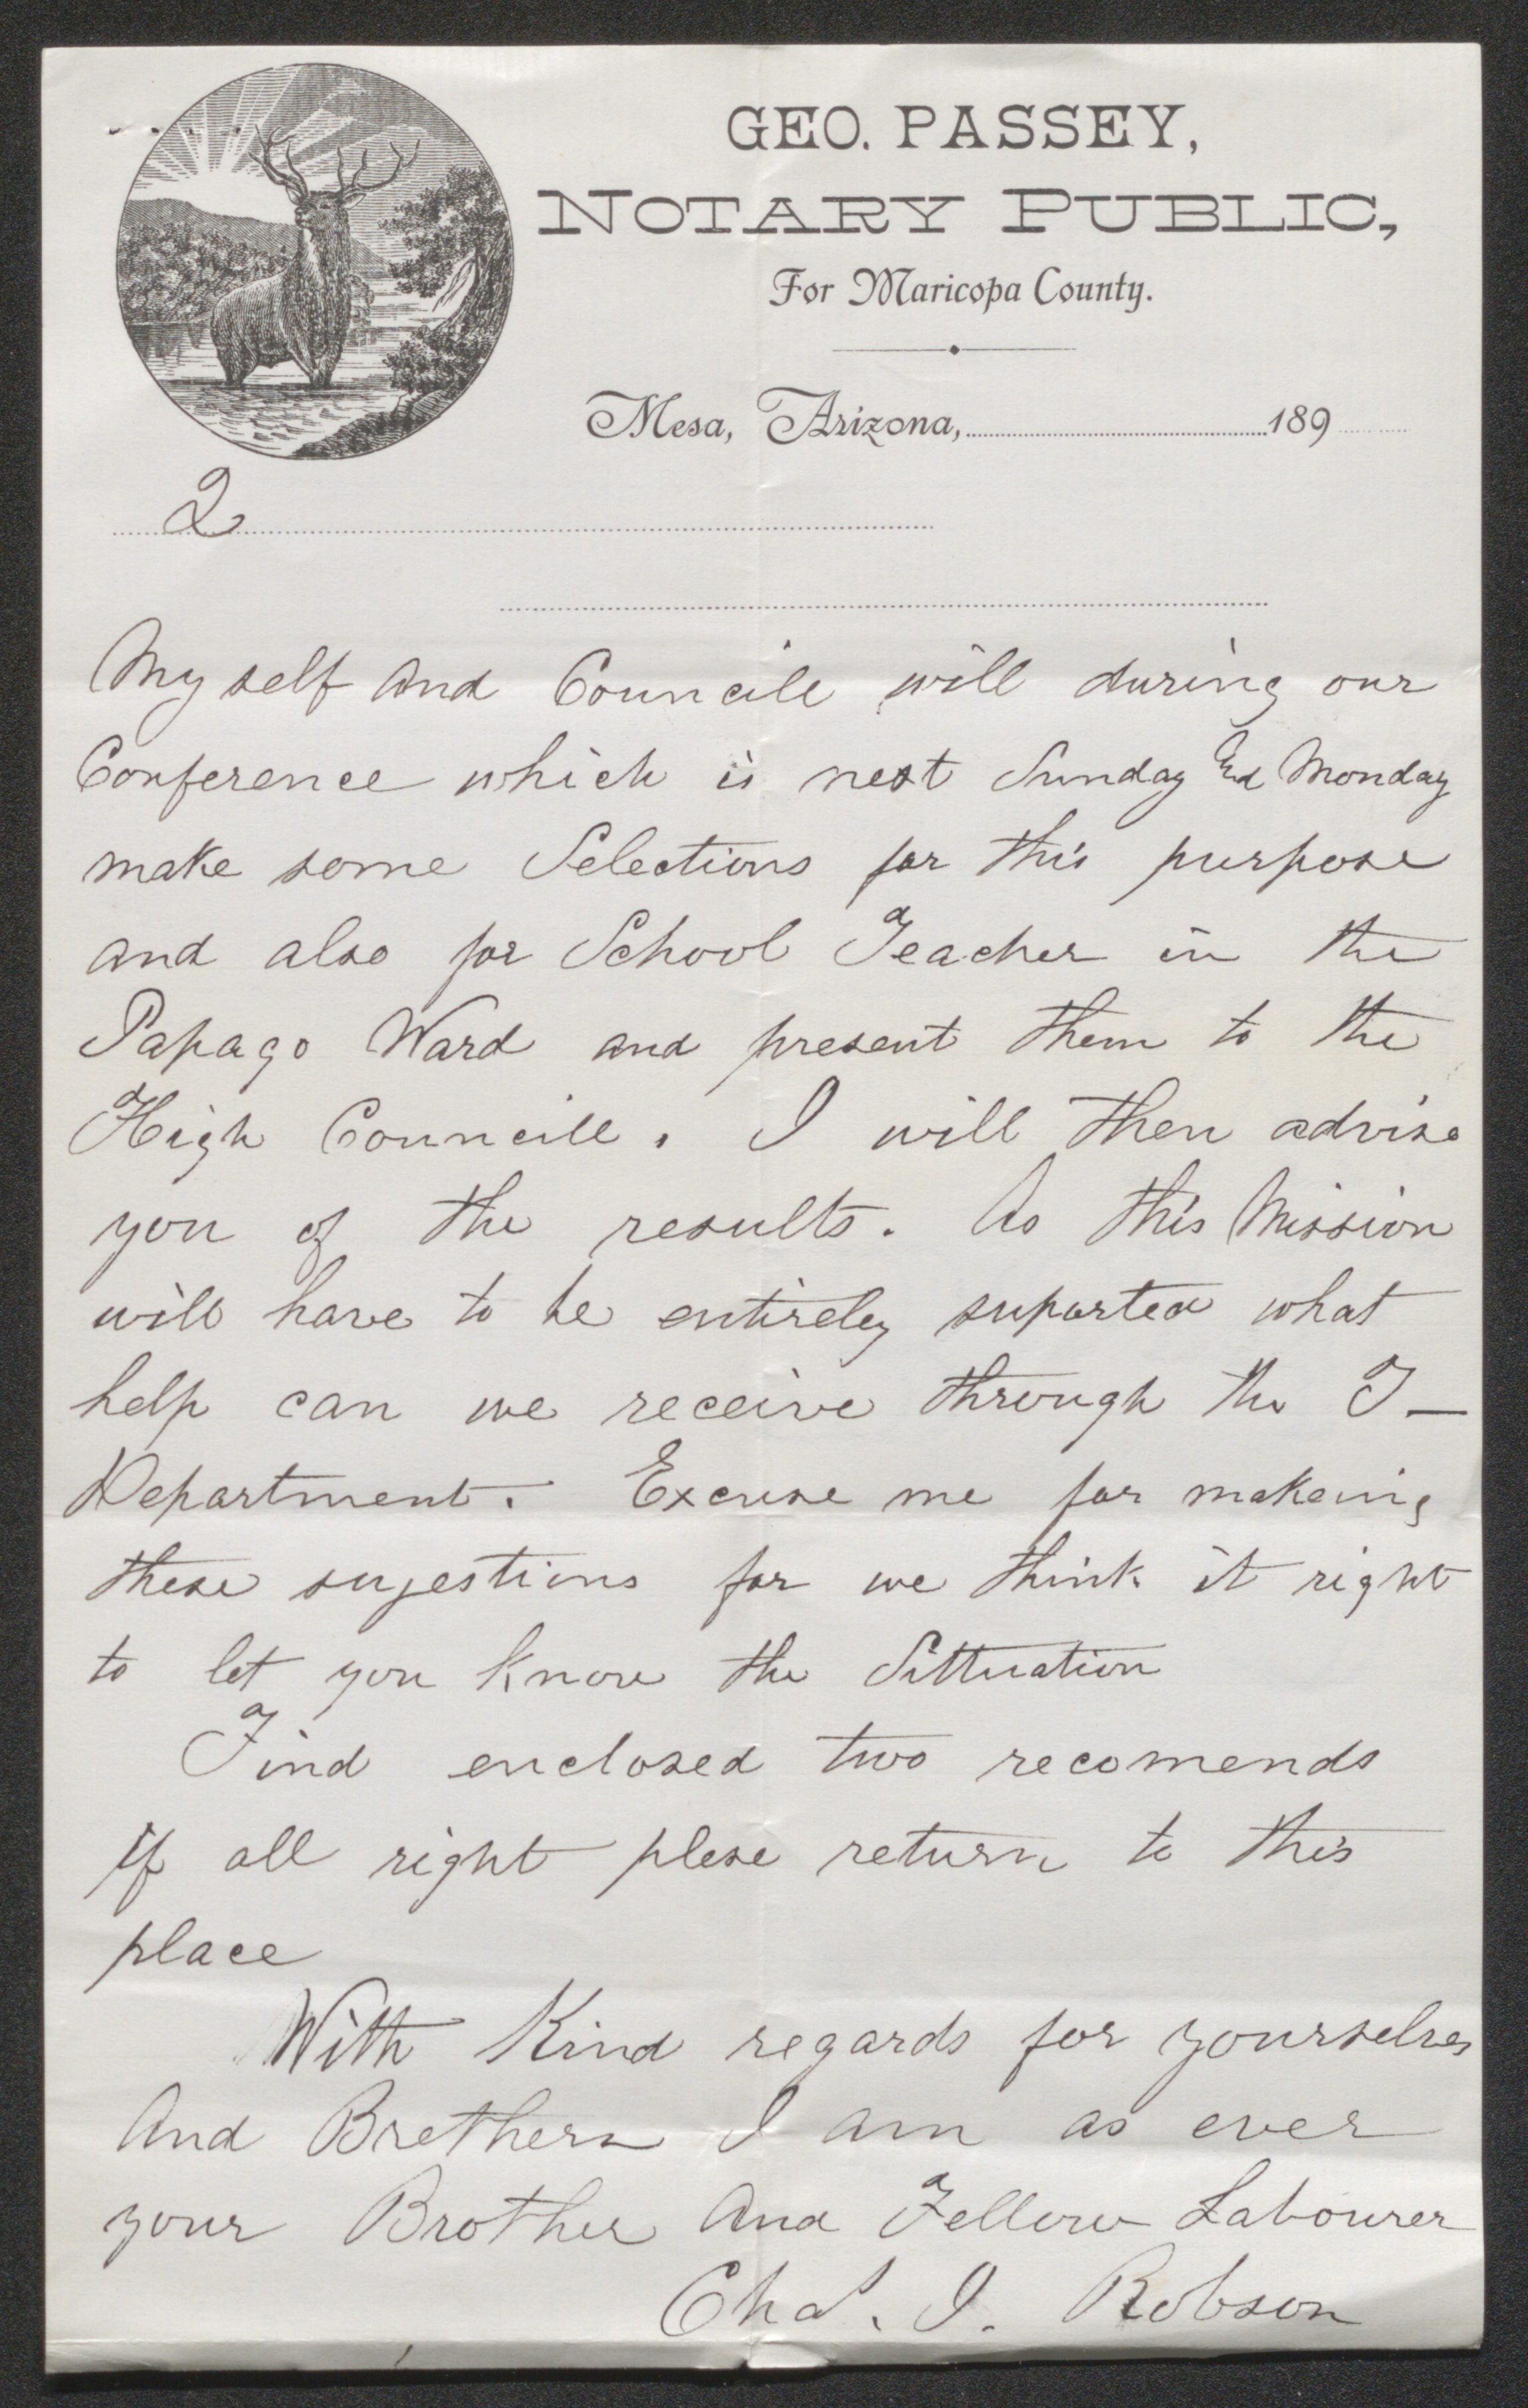 GEO. PASSEY,
NOTARY PUBLIC,
For Maricopa County.
Mesa, Arizona, 189
2
My self and Councill will during our
Conference which is next Sunday and Monday
make some Selections for this purpose
and also for School Teacher in the
Papago Ward and present them to the
High Councill. I will then advise
you of the results. As this Mission
will have to be entireley suported what
help can we receive through the I–
Department. Excuse me for makeing
these sugestions for we think it right
to let you know the Sittuation
Find enclosed two recomends
if all right plese return to this
place
With Kind regards for yourselves
and Brethern I am as ever
your Brother and Fellow Labourer
Chas. I. Robson